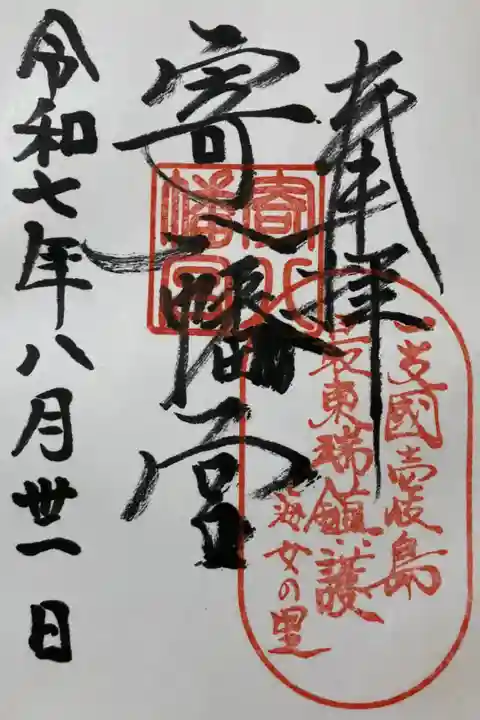 奉拝
一支國壱岐島
最東瑞鎮護
海女の里
寄八幡宮
寄八幡宮
令和七年八月丗一日